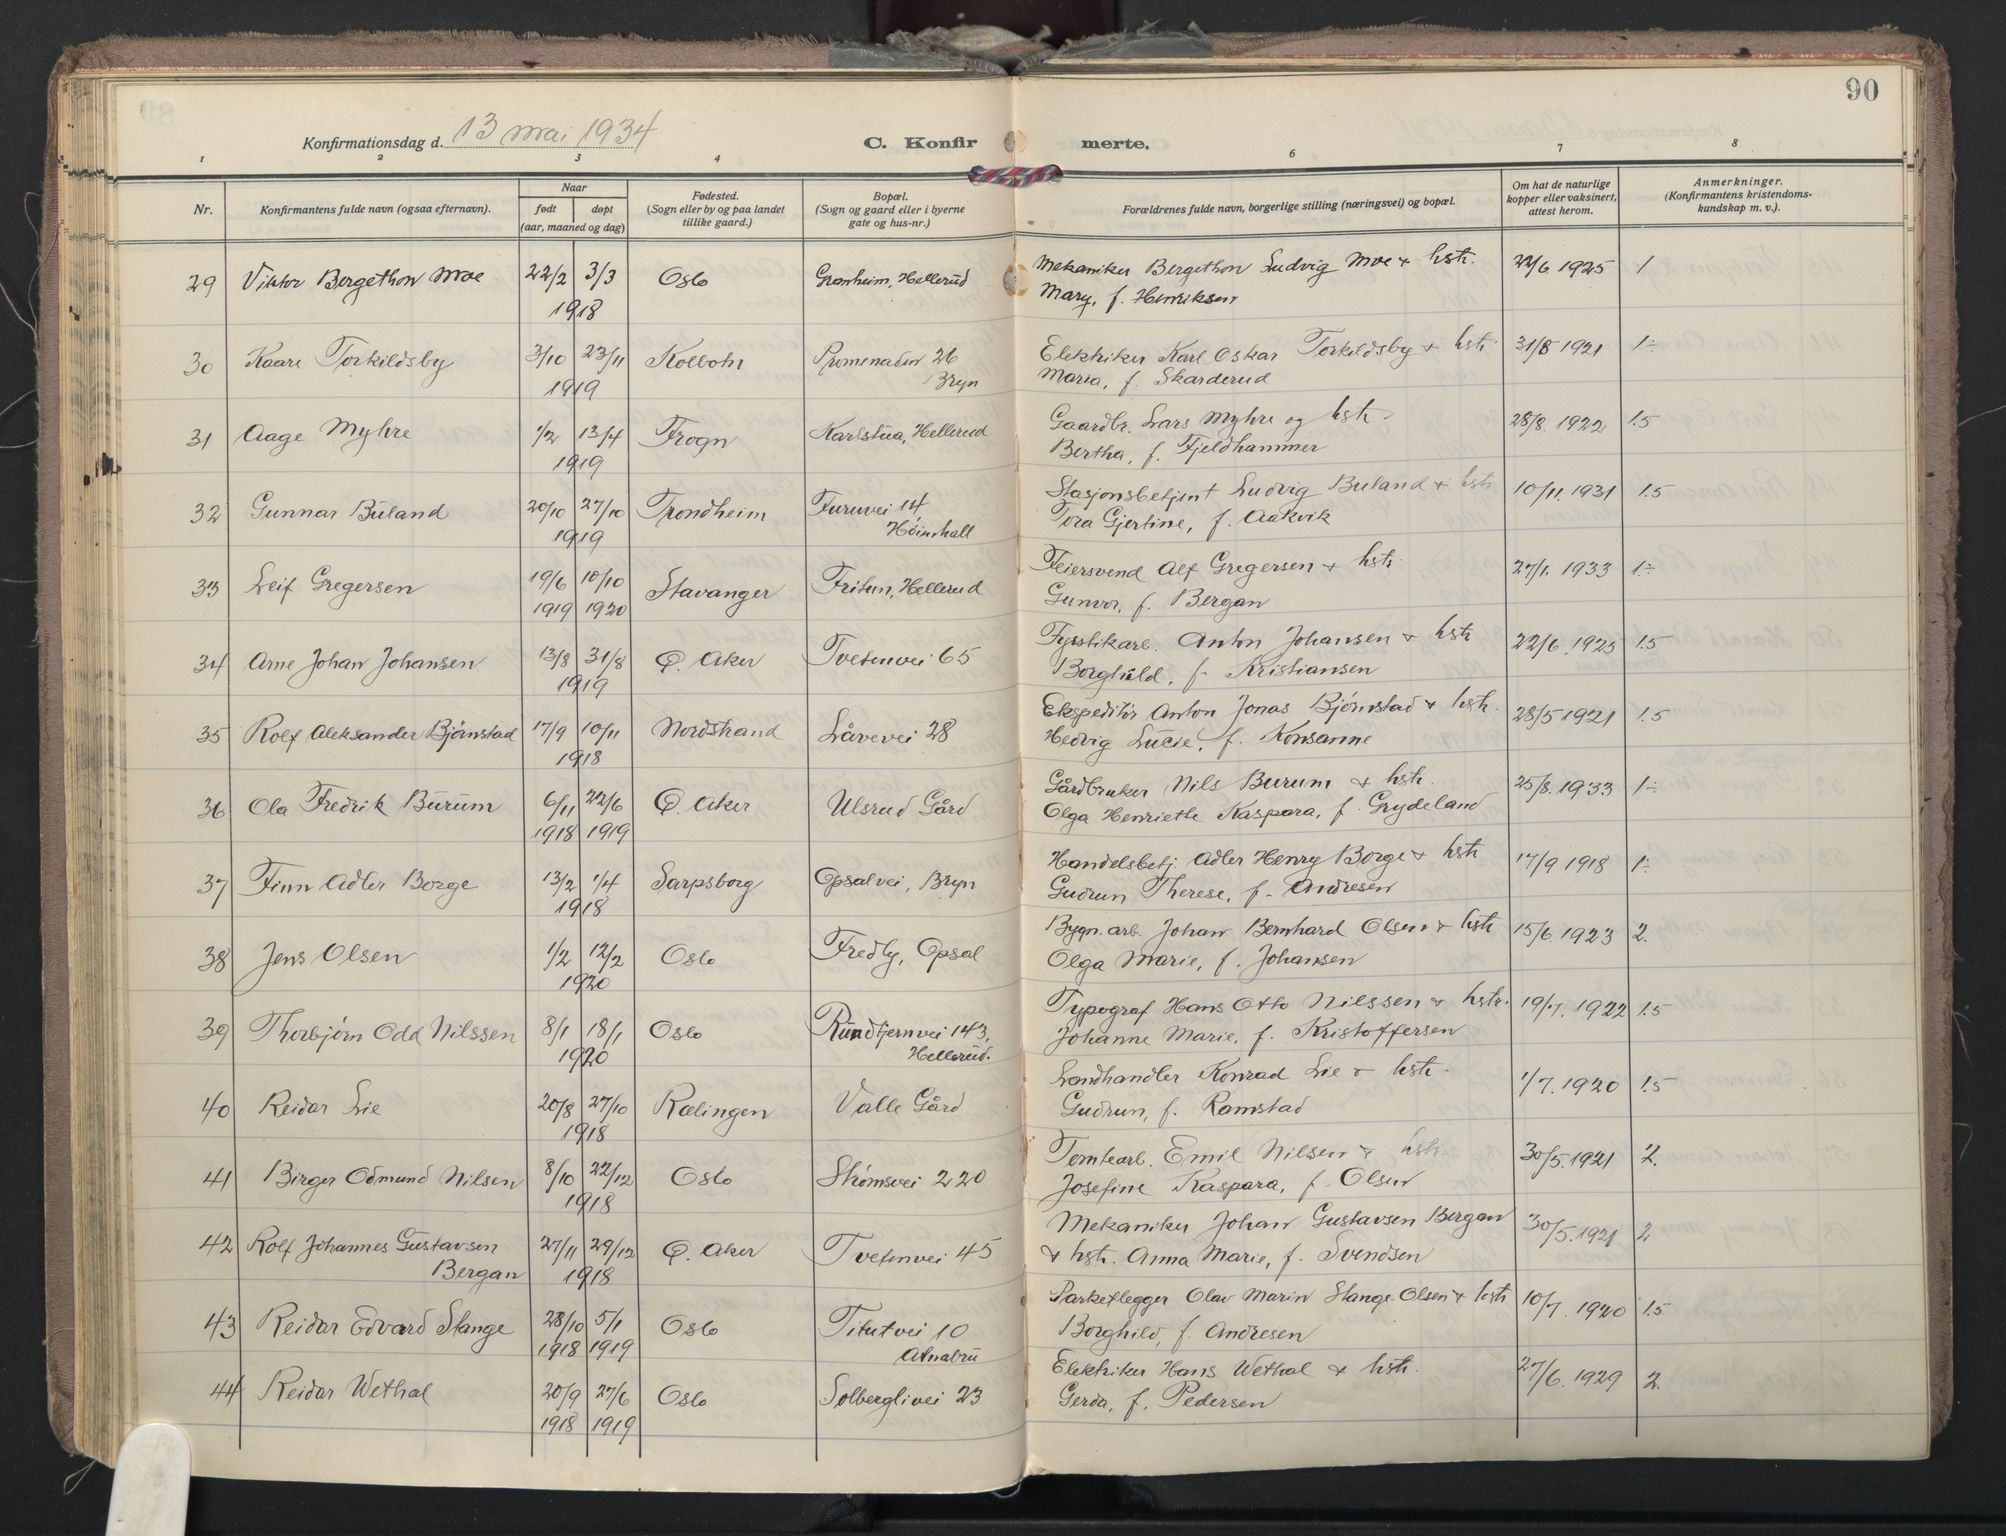 90
Konfirmationsdag d. 13 mai 1934
C. Konfirmerte.
1 2 3 4 5 6 7 8
Nr.
Konfirmantens fulde navn (ogsaa efternavn).
Naar
født døpt
(aar, maaned og dag)
Fødested.
(Sogn eller by og paa landet
tillike gaard.)
Bopæl.
(Sogn og gaard eller i byerne
gate og hus-nr.)
Forældrenes fulde navn, borgerlige stilling (næringsvei) og bopæl.
Om hat de naturlige
kopper eller vaksinert,
attest herom.
Anmerkninger.
(Konfirmantens kristendoms-
kundskap m. v.).
29 Viktor Bergethon Moe 22/2 3/3 Oslo Granheim, Hellerud Mekaniker Bergethon Ludvig Moe + hstr. 22/6 1925 1
1918 Mary, f. Henriksen
30 Kaare Torkildsby 3/10 23/11 Kolbotn Promenaden 26 Elektriker Karl Oskar Torkildsby + hstr. 31/8 1921 1÷
1919 Bryn Maria, f. Skarderud
31 Aage Myhre 1/2 13/4 Frogn Karlstua, Hellerud Gaardbr. Lars Myhre og hstr. 28/8. 1922 1.5
1919 Bertha, f. Fjeldhammer
32 Gunnar Buland 20/10 27/10 Trondheim Furuvei 14 Stasjonsbetjent Ludvig Buland + hstr 10/11. 1931 1.5
1919 Høinhall Tora Gjertine, f. Aakvik
33 Leif Gregersen 19/6 10/10 Stavanger Fritun, Hellerud Feiersvend Alf Gregersen + hstr. 27/1. 1933 1.÷
1919 1920 Gunvor, f. Bergan
34 Arne Johan Johansen 13/8 31/8 Ø. Aker Tvetenvei 65 Fyrstikarb. Anton Johansen + hstr 22/6. 1925 1.5
1919 Borghild, f. Kristiansen
35 Rolf Aleksander Bjørnstad 17/9 10/11 Nordstrand Låvevei 28 Ekspeditør Anton Jonas Bjørnstad + hstr. 28/5 1921 1.5
1918 Hedvig Lucie, f. Konsanne
36 Ola Fredrik Burum 6/11 22/6 Ø. Aker Ulsrud Gård Gårdbruker Nils Burum + hstr. 25/8. 1933 1÷
1918 1919 Olga Henriette Kaspara, f. Grydeland
37 Finn Adler Borge 13/2 1/4 Sarpsborg Opsalvei, Bryn Handelsbetj. Adler Henry Borge + hstr 17/9 1918 1÷
1918 Gudrun Therese, f. Andresen
38 Jens Olsen 1/2 12/2 Oslo Fredly, Opsal Bygn. arb. Johan Bernhard Olsen + hstr. 15/6. 1923 2.
1920 Olga Marie, f. Johansen
39 Thorbjørn Odd Nilssen 8/1 18/1 Oslo Rundtjernvei 143, Typograf Hans Otto Nilssen + hstr. 19/7. 1922 1.5
1920 Hellerud. Johanne Marie, f. Kristoffersen
40 Reidar Lie 20/8 27/10 Rælingen Valle Gård Landhandler Konrad Lie + hstr. 1/7. 1920 1.5
1918 Gudrun, f. Ramstad
41 Birger Odmund Nilsen 8/10 22/12 Oslo Strømsvei 220 Tomtearb. Emil Nilsen + hstr. 30/5. 1921 2.
1918 Josefine Kaspara, f. Olsen
42 Rolf Johannes Gustavsen 27/11 29/12 Ø. Aker Tvetenvei 45 Mekaniker Johan Gustavsen Bergan 30/5. 1921 2
Bergan 1918 + hstr. Anna Marie, f. Svendsen
43 Reidar Edvard Stange 28/10 5/1 Oslo Titutvei 10 Parketlegger Olav Marin Stange Olsen + hstr 10/7. 1920 1.5
1918 1919 Alnabru Borghild, f. Andresen
44 Reidar Wethal 20/9 27/6 Oslo Solberglivei 23 Elektriker Hans Wethal + hstr. 27/6. 1929 2.
1918 1919 Gerda, f. Pedersen